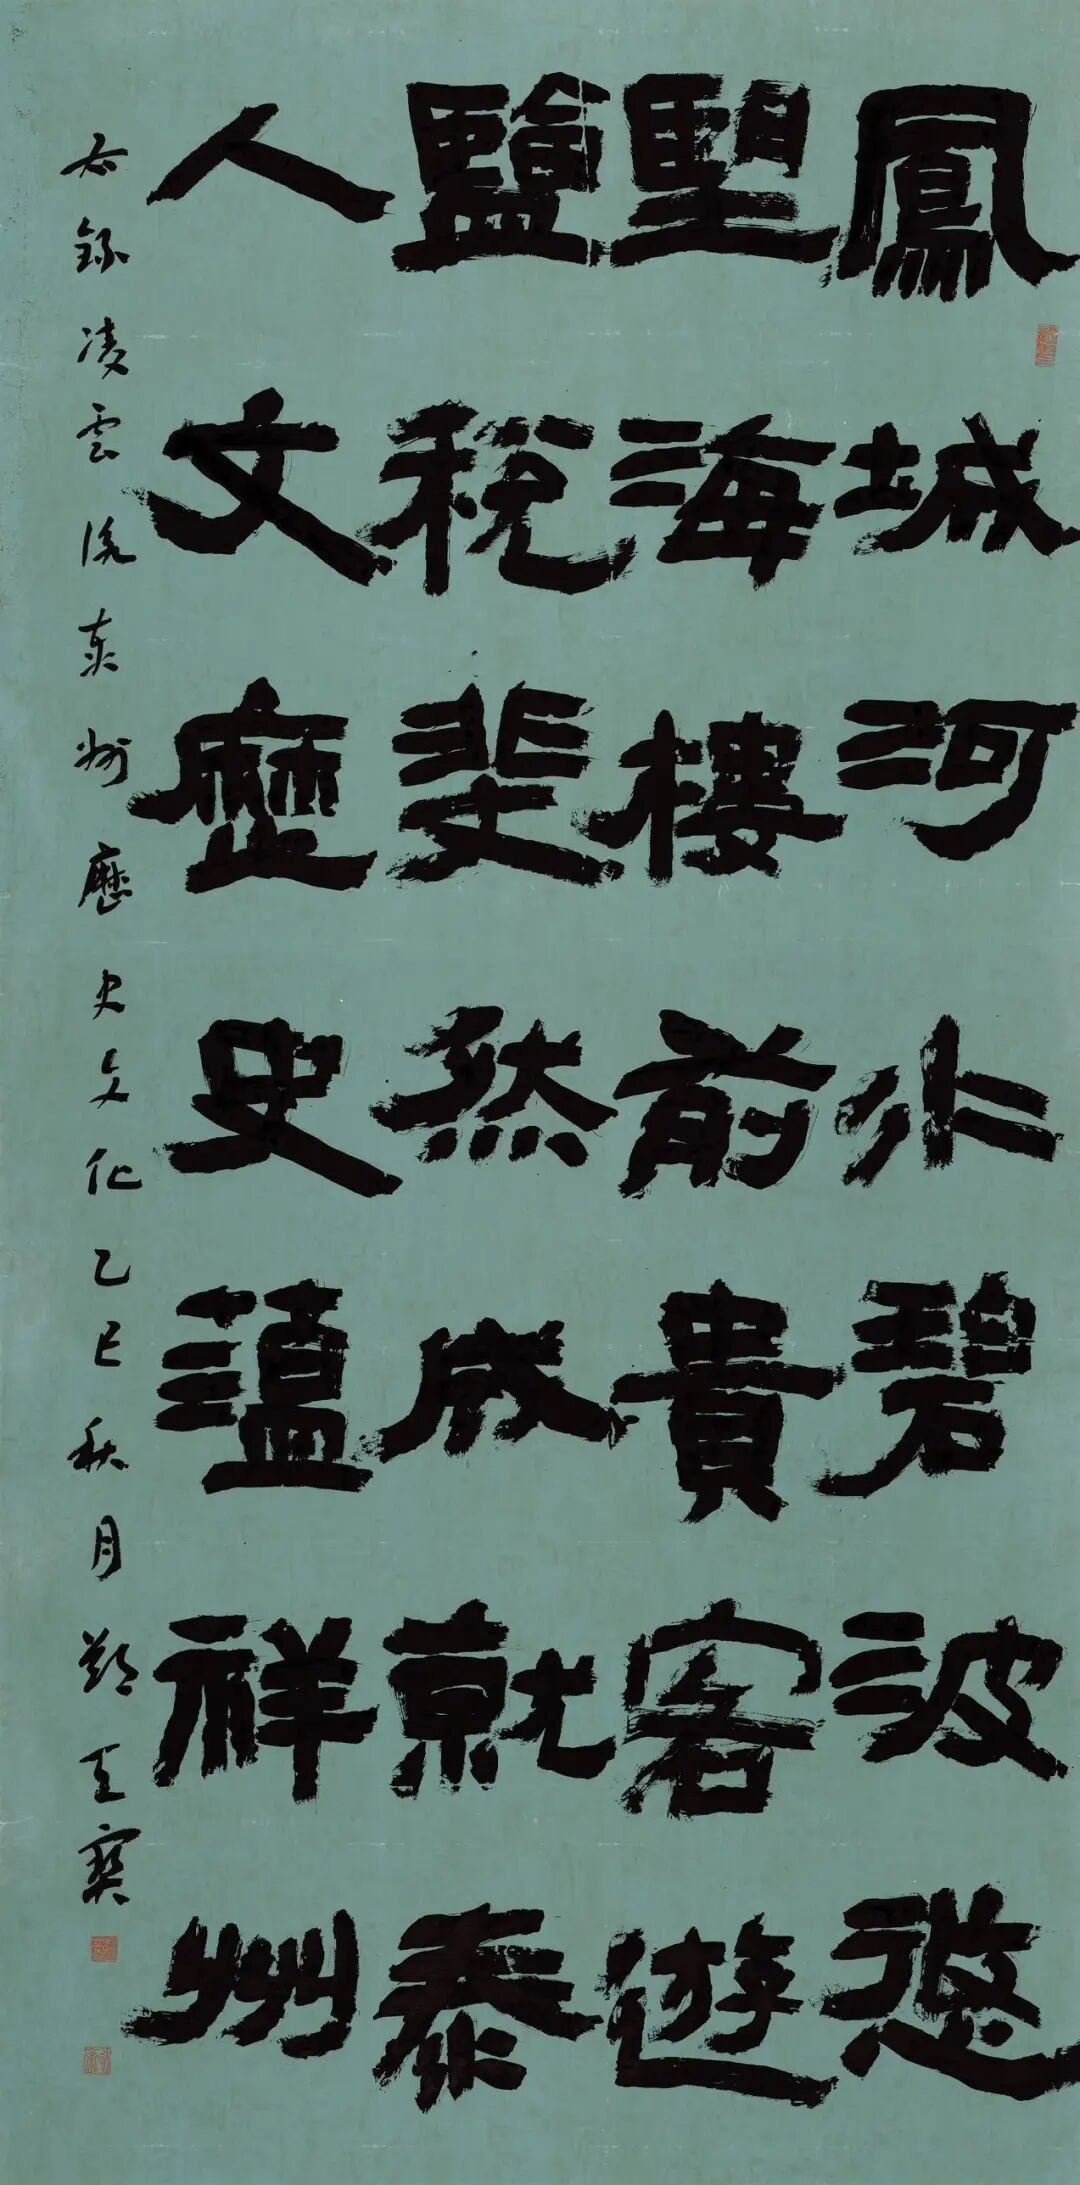 鳳城河水碧波悠
朢海樓前貴客遊
鹽稅斐然成就泰
人文歷史蘊祥州
右錄凌雲泰州歷史文化乙巳秋月鄭寶